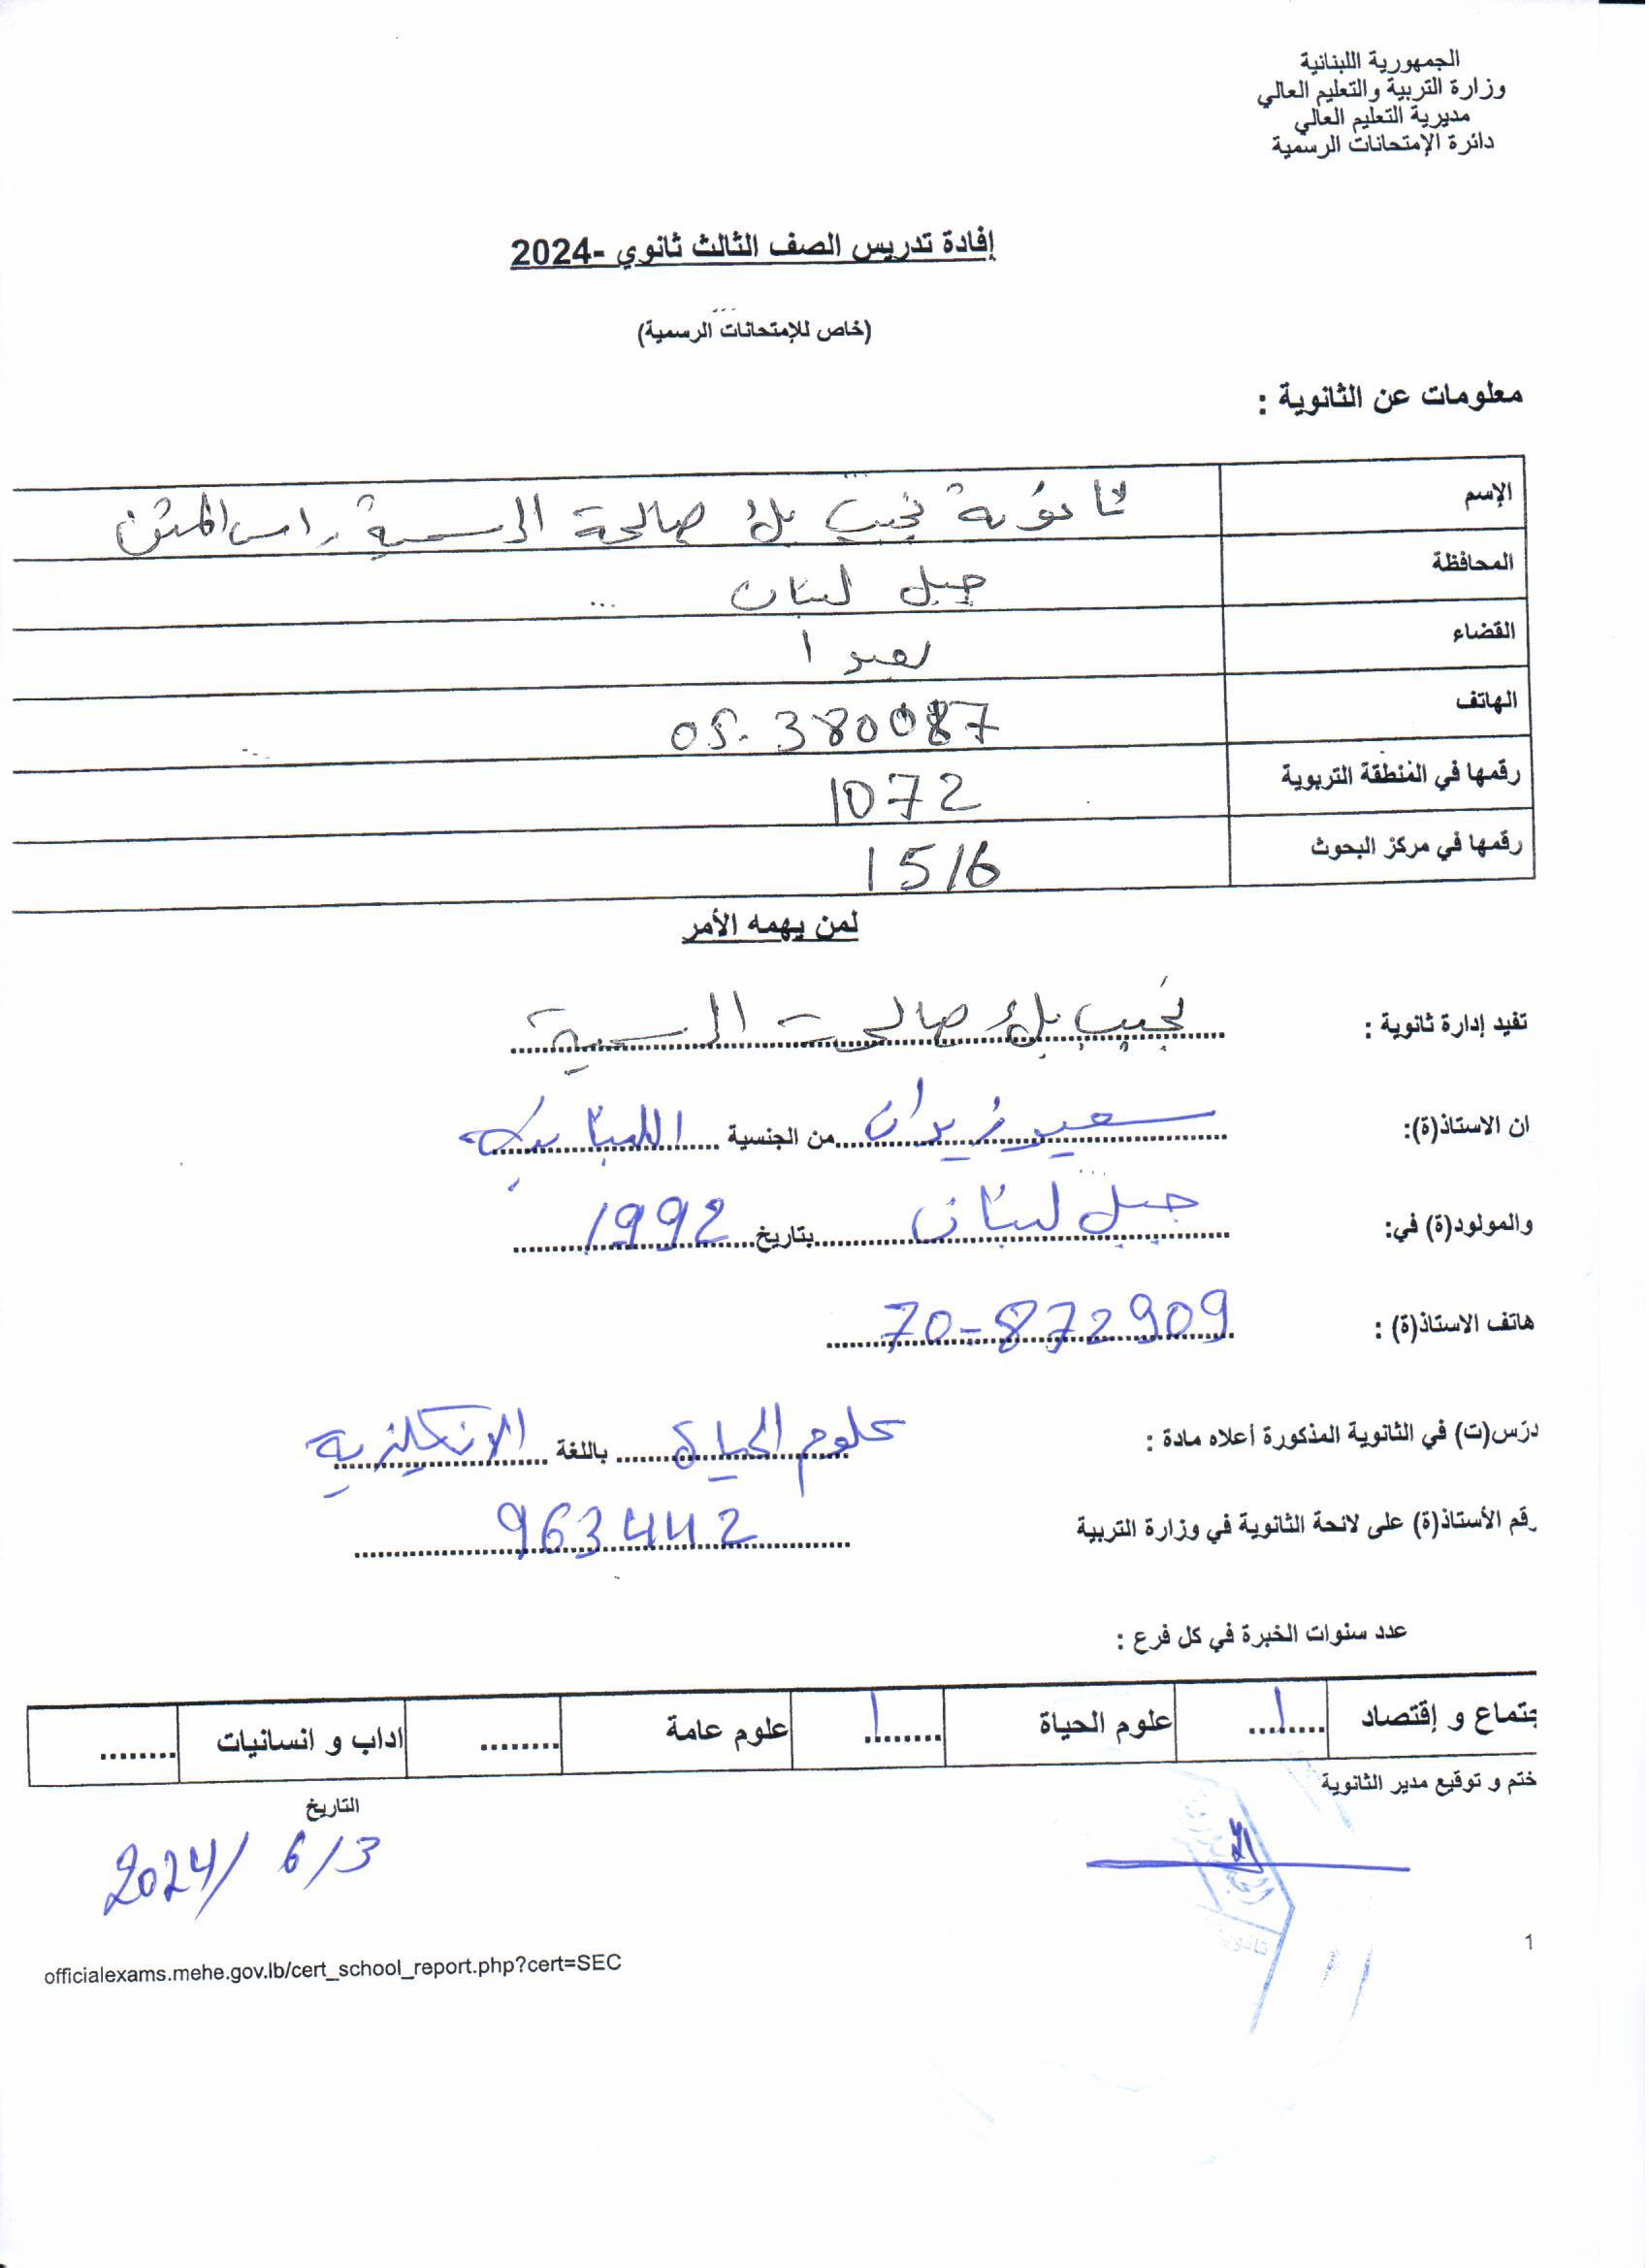 الجمهورية اللبنانية
وزارة التربية والتعليم العالي
مديرية التعليم العالي
دائرة الإمتحانات الرسمية
إفادة تدريس الصف الثالث ثانوي -2024
(خاص للإمتحانات الرسمية)
معلومات عن الثانوية :
الإسم ثانوية نجيب بك صالحة الرسمية راس المتن
المحافظة جبل لبنان
القضاء بعبدا
الهاتف 05.380087
رقمها في المنطقة التربوية 1072
رقمها في مركز البحوث 1516
لمن يهمه الأمر
تفيد إدارة ثانوية : نجيب بك صالحة الرسمية
ان الاستاذ(ة): سعيد زيدان من الجنسية اللبنانية
والمولود(ة) في: جبل لبنان بتاريخ 1992
هاتف الاستاذ(ة) : 70-872909
درّس(ت) في الثانوية المذكورة أعلاه مادة : علوم الحياة باللغة الانكليزية
رقم الأستاذ(ة) على لائحة الثانوية في وزارة التربية 963442
عدد سنوات الخبرة في كل فرع :
جتماع و إقتصاد 1 علوم الحياة 1 علوم عامة ........ اداب و انسانيات ........
ختم و توقيع مدير الثانوية
التاريخ
2024/ 6/3
ثانوية
officialexams.mehe.gov.lb/cert_school_report.php?cert=SEC
1